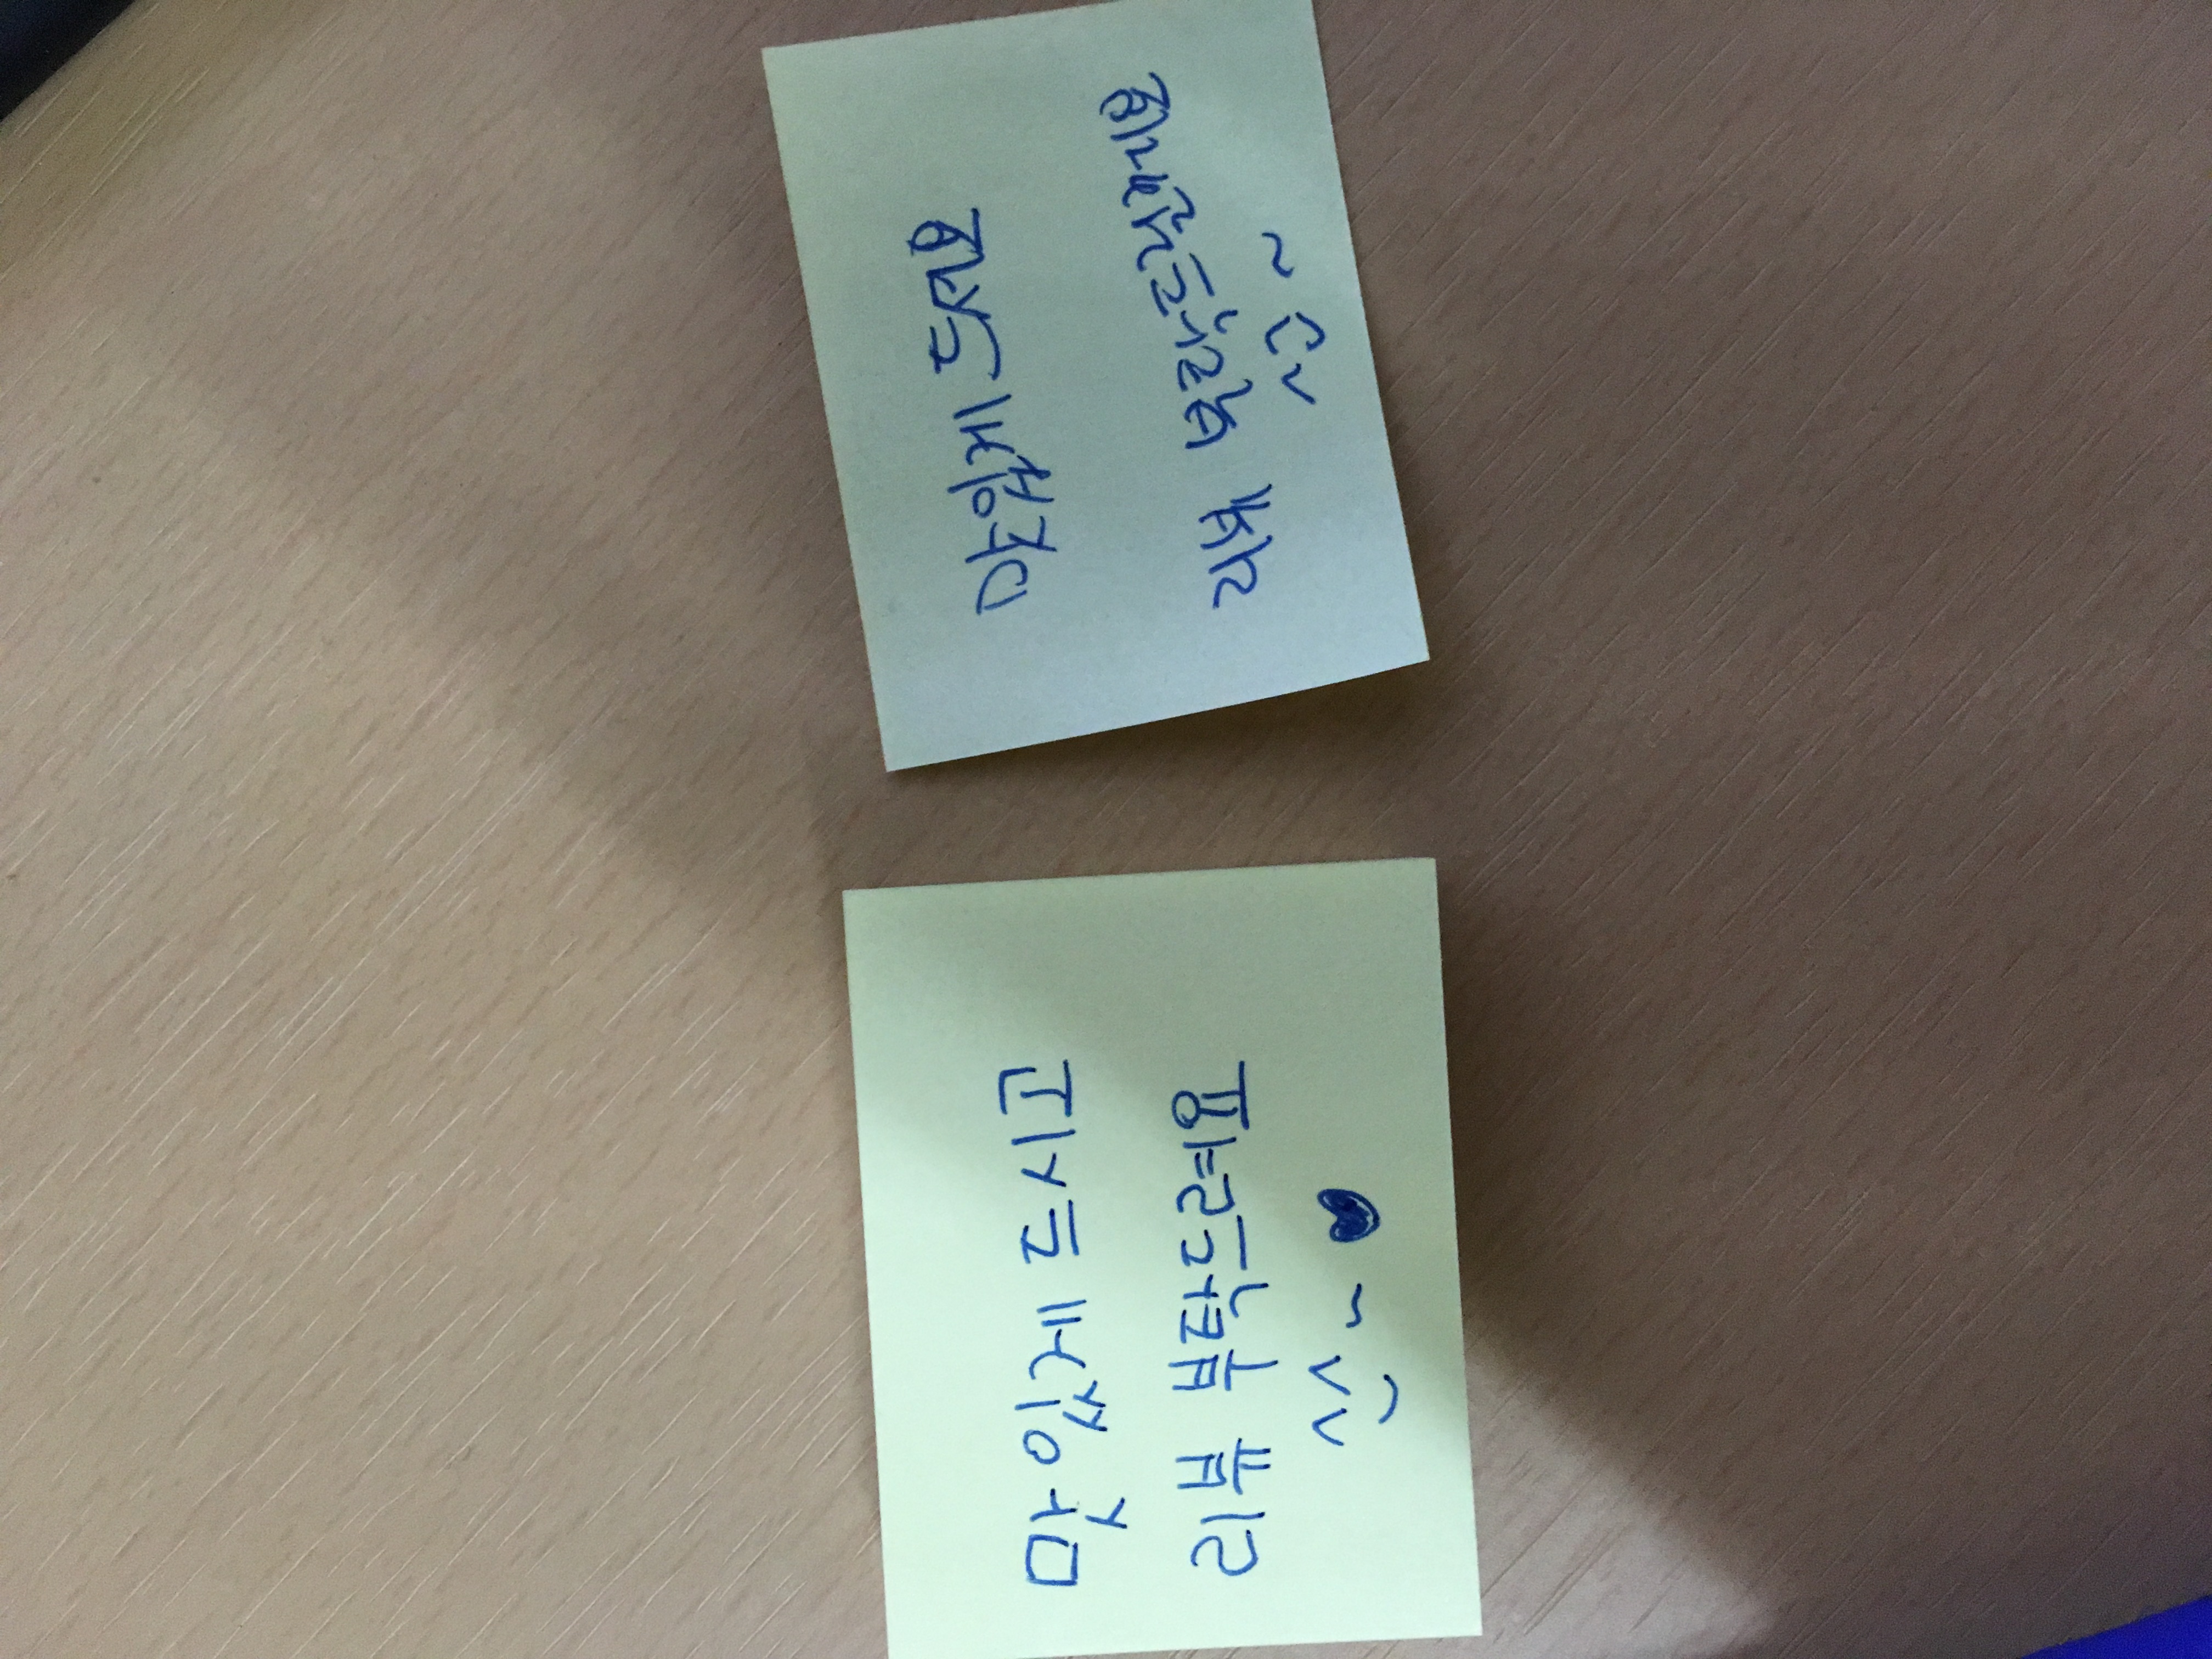 맛있게 드시고
리뷰 부탁드려요
^^~ ♥
맛있게 드셔요
리뷰 부탁드릴께요
^^~